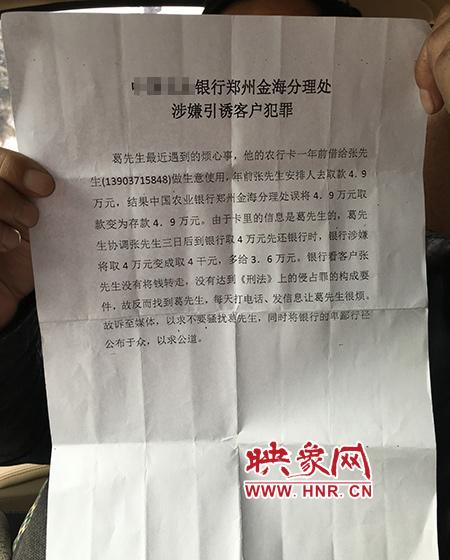 银行郑州金海分理处
涉嫌引诱客户犯罪
葛先生最近遇到的烦心事，他的农行卡一年前借给张先
生(13903715848)做生意使用，年前张先生安排人去取款 4.9
万元，结果中国农业银行郑州金海分理处误将 4．9 万元取
款变为存款 4．9 万元。由于卡里的信息是葛先生的，葛先
生协调张先生三日后到银行取 4 万元先还银行时，银行涉嫌
将取 4 万元变成取 4 千元，多给 3．6 万元。银行看客户张
先生没有将钱转走，没有达到《刑法》上的侵占罪的构成要
件，故反而找到葛先生，每天打电话、发信息让葛先生很烦。
故诉至媒体，以求不要骚扰葛先生，同时将银行的卑鄙行径
公布于众，以求公道。
映象网
WWW.HNR.CN